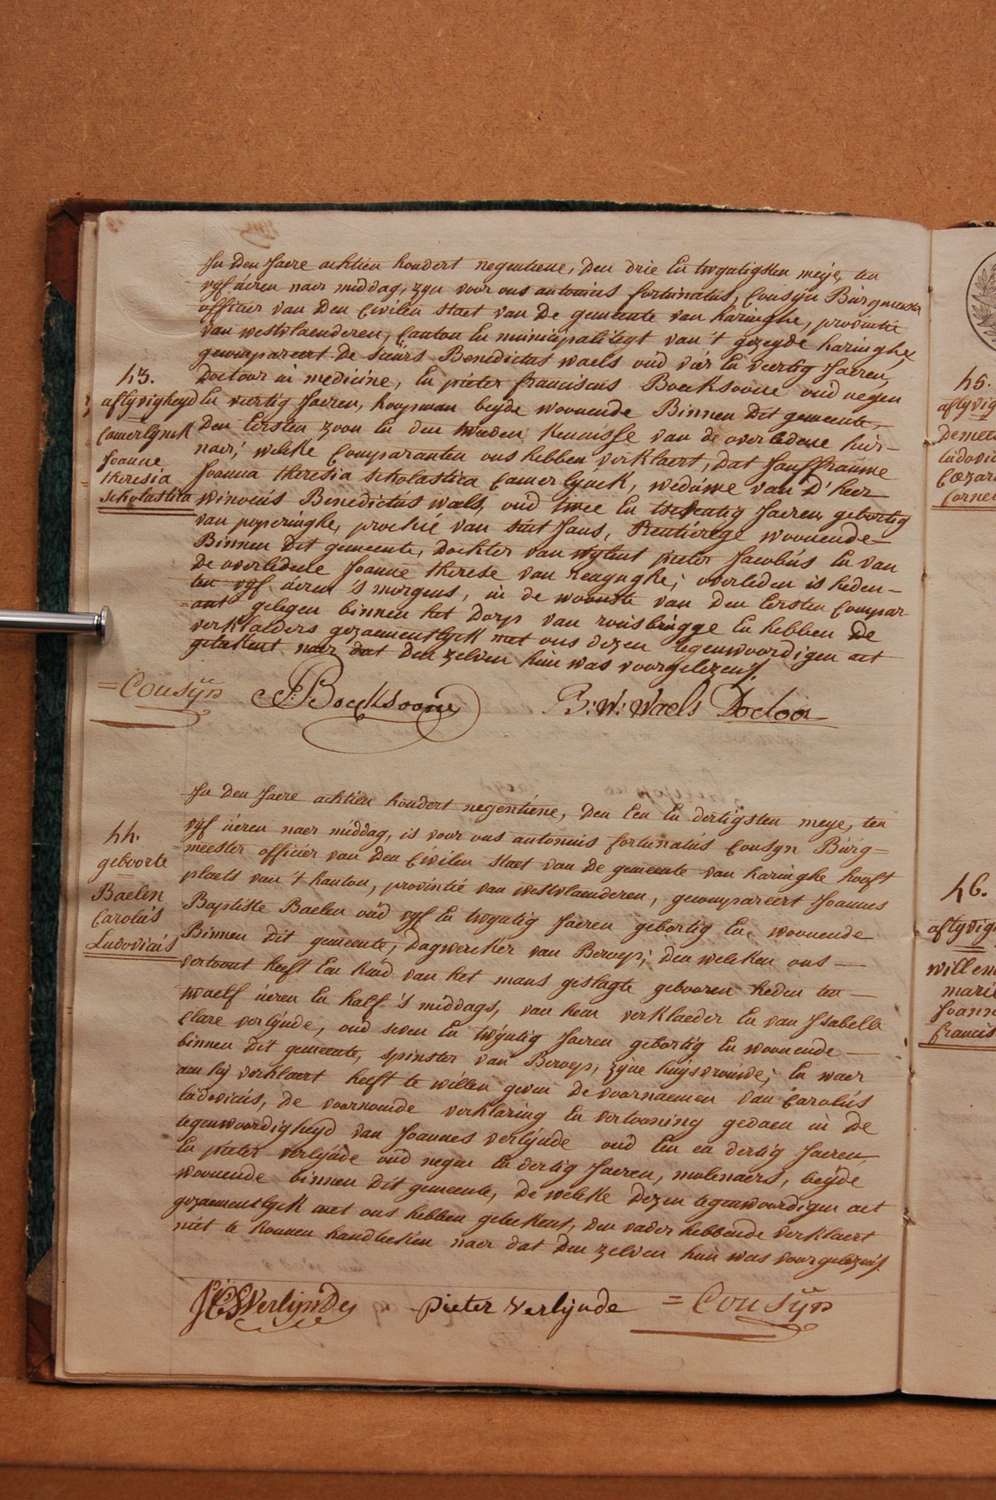 In den Jaere achtien hondert negentiene, den drie en twgatigsten meije, ten
vyf üeren naer middag, zyn voor ons antonius fortunatus, Cousÿn Bürgmeester
officier van den Civilen staet van de gemeente van haringhe, provintie
van westvlaenderen, Canton en münicipalitëyt van 't gezeyde haringhe,
gecompareert de sieurs Benedictus waels oüd vier en veertig Jaeren,
Doctoor in medicine, en pieter franciscus Boeksoone oud negen
43.
aflÿvigheyd
Camerlÿnck
Joanne
theresia
scholastica
en veertig Jaeren, koopman beÿde woonende Binnen dit gemeente,
den Eersten zoon en den tweeden kennisse van de overledene hier-
naer; welke Comparanten ons hebben verklaert, dat Jouffrauwe
Joanna theresia scholastica Camerlÿnck, wedüwe van D'heer
winocüs Benedictüs waels, oüd twee en tseventig Jaeren gebortig
van poperinghe, prochie van sint Jans, Rentierege woonende-
Binnen dit gemeente, dochter van wylent pieter Jacobüs en van
de overledene Joanne therese van renynghe; overleden is heden-
ten vyf üeren 's morgens, in de woonste van den Eersten Compar
ant gelegen binnen het dorp van rousbrügge en hebben de
verklaerders gezaementlyck met ons dezen tegenwoordigen act
geteekent naer dat den zelven hün was voorgelezen.
= Cousÿn
P: Boeksoone
B: W: Waels Doctoor
In den Jaere achtien hondert negentiene, den een en dertigsten meye, ten
vyf üeren naer middag, is voor ons antonius fortunatüs Cousyn Bürg=
meester officier van den Civilen staet van de gemeente van haringhe hooft
plaets van 't kanton, provintie van westvlaenderen, gecompareert Joannes
44.
geboorte
Baelen
Carolüs
Ludovicüs
Baptiste Baelen oüd vyf en twgatig Jaeren gebortig en woonende
Binnen dit gemeente, dagwercker van Beroep; den welcken ons
vertoont heeft een kind van het mans geslagte gebooren heden ten
twaelf üeren en half 's middags, van hem verklaeder en van Isabelle
Clare verlÿnde, oud seven en twÿntig Jaeren gebortig en woonende
binnen dit gemeente, spinster van Beroep, zÿne huÿsvrouwe; en waer
aen hÿ verklaert heeft te willen geven de voornaemen van Carolüs
lüdovicüs, de voornoemde verklaring en vertooning gedaen in de
tegenwoordigheyd van Joannes verlÿnde oud een en dertig Jaeren,
En pieter verlÿnde oüd negen en dertig Jaeren, molenaers, beÿde
woonende binnen dit gemeente, de welcke dezen tegenwoordigen act
gezaementlyck met ons hebben geteekent, den vader hebbende verklaert
niet te konnen handteeken naer dat den zelven hün was voorgelezen.
Verlijnde
pieter verlijnde
= Cousÿn
45.
aflÿvig
Ludovic
Corne
46.
aflÿvig
willem
marie
Joann
francis